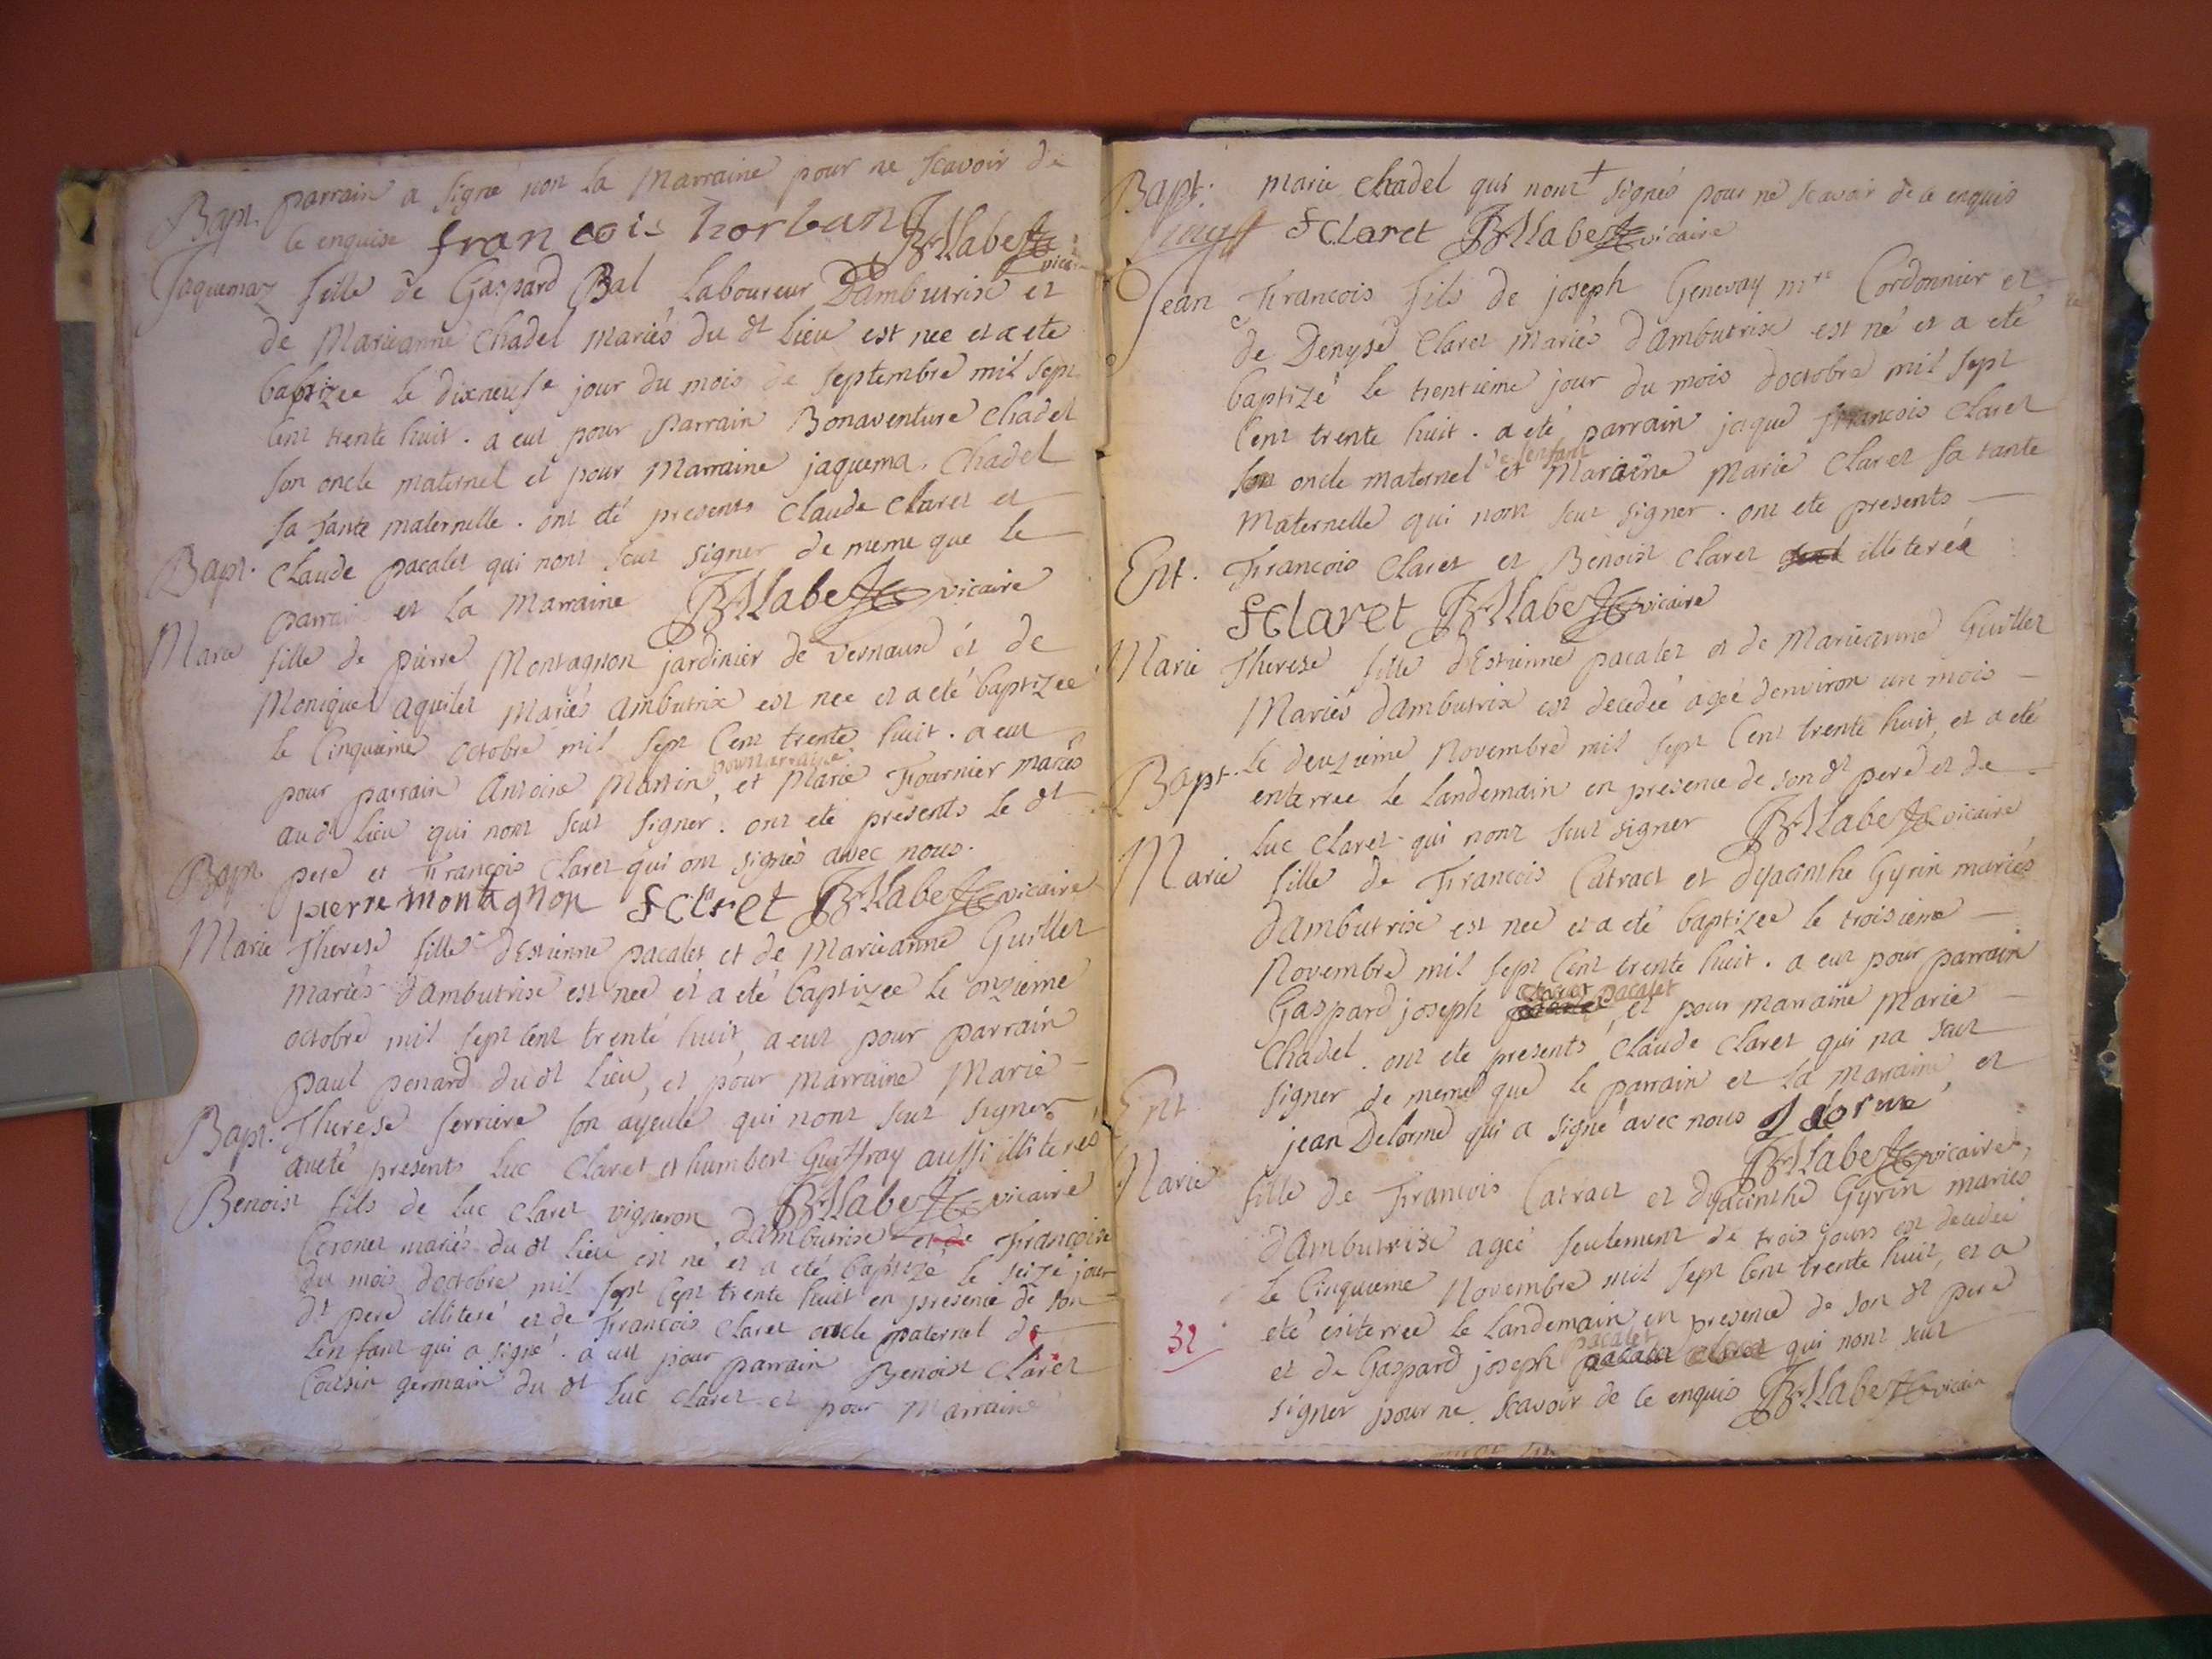 Bapt. parrain a signé non la Marraine pour ne scavoir de
ce enquise francois horban BHLabe vicaire
Jaquemaz fille de Gaspard Bal Laboureur Dambutrix et
de Marieanne Chadel mariés du dt Lieu est nee et a ete
baptizee le dixneufe jour du mois de septembre mil sept
cent trente huit . a eut pour Parrain Bonaventure Chadel
son oncle maternel et pour Marraine jaquema Chadel
sa tante maternelle . ont été presents Claude Claret et
Bapt. Claude pacalet qui nont scut signer de meme que le
parrain et la Marraine BHLabe vicaire
Marie fille de pierre Montagnon jardinier de Vernaux et de
Monique aguilet Mariés ambutrix est nee et a eté baptizee
le Cinquieme Octobre mil sept Cent trente huit . a eut
pour parrain Antoine Martin, et Marie Fournier mariés
au dt Lieu qui nont scut signer . ont eté presents le dt
Bapt. pere et François Claret qui ont signés avec nous.
pierre montagnon F Claret BHLabe vicaire
Marie Therese fille dEstienne pacalet et de Marieanne Guillet
mariés dambutrix est nee et a eté baptizee le onzieme
octobre mil sept cent trente huit, a eut pour parrain
paul penard du dt Lieu, et pour Marraine Marie
Bapt. Therese ferriere son ayeule qui nont scut signer
presents Luc Claret et humbert Guiffray aussi illiterés
BHLabe vicaire
Benoist fils de Luc Claret vigneron dambutrix et de Françoise
Coronet mariés du dt Lieu est né et a eté baptizé le seize jour
du mois doctobre mil sept Cent trente huit en presence de son
dt pere illiteré et de François Claret oncle paternel de
Lenfant qui a signé . a eut pour parrain Benoist Claret
Cousin germain du dt Luc Claret et pour Marraine
Bapt. marie Chadel qui nont + signés pour ne scavoir de ce enquis
F Claret BHLabe vicaire
Jean François fils de joseph Genevay mre Cordonnier et
de Denyse Claret Mariés dambutrix est né et a eté
baptizé le trentieme jour du mois doctobre mil sept
Cent trente huit . a eté parrain jaque François Claret
de lenfant
son oncle maternel et Maraine Marie Claret sa tante
Maternelle qui nont scut signer . ont ete presents
Ent. François Claret et Benoist Claret illiteré
F Claret BHLabe vicaire
Marie Therese fille dEstienne pacalet et de Marieanne Guillet
Mariés dambutrix est decedée ageé denviron un mois
le deuzieme Novembre mil sept Cent trente huit, et a eté
Bapt. enterree le Landemain en presence de son dt pere et de
Luc Claret qui nont scut signer BHLabe vicaire
Marie fille de François Catract et dyacinthe Gyrin mariés
dambutrix est nee et a eté baptizee le troisieme
Novembre mil sept Cent trente huit . a eut pour parrain
pacalet
Gaspard joseph, et pour marraine Marie
Chadel . ont ete presents Claude Claret qui na scut
signer de meme que le parrain et la Marraine, et
Ent. jean Delorme qui a signé avec nous
BHLabe vicaire
Marie fille de François Catract et dyacinthe Gyrin mariés
dambutrix ageé seulement de trois jours est decedée
le Cinquieme Novembre mil sept Cent trente huit, et a
eté enterree le Landemain en presence de son dt pere
32
pacalet
et de Gaspard joseph qui nont scut
signer pour ne scavoir de ce enquis BHLabe vicaire